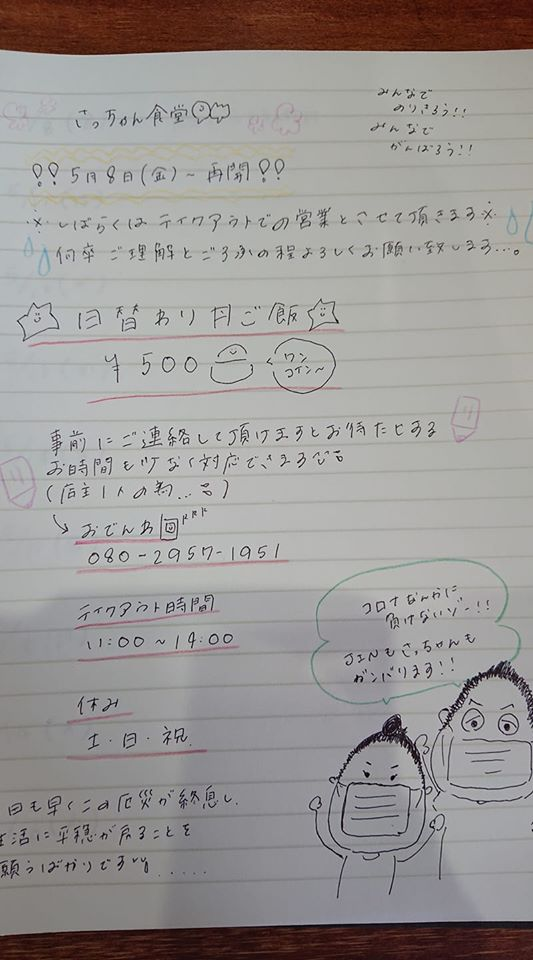 さっちゃん食堂
みんなで
のりきろう!!
みんなで
がんばろう!!
!! 5月8日(金)~再開!!
※しばらくはテイクアウトでの営業とさせて頂きます※
何卒ご理解とご了承の程よろしくお願い致します…。
日替わり丼ご飯
¥500
ワン
コイン~
事前にご連絡して頂けますとお待たせする
お時間も少なく対応できます
(店主1人の為…。)
おでんわ
080-2957-1951
テイクアウト時間
11:00~14:00
休み
土・日・祝
コロナなんかに
負けないゾー!!
JINもさっちゃんも
ガンバります!!
日も早くこの厄災が終息し、
生活に平穏が戻ることを
願うばかりです